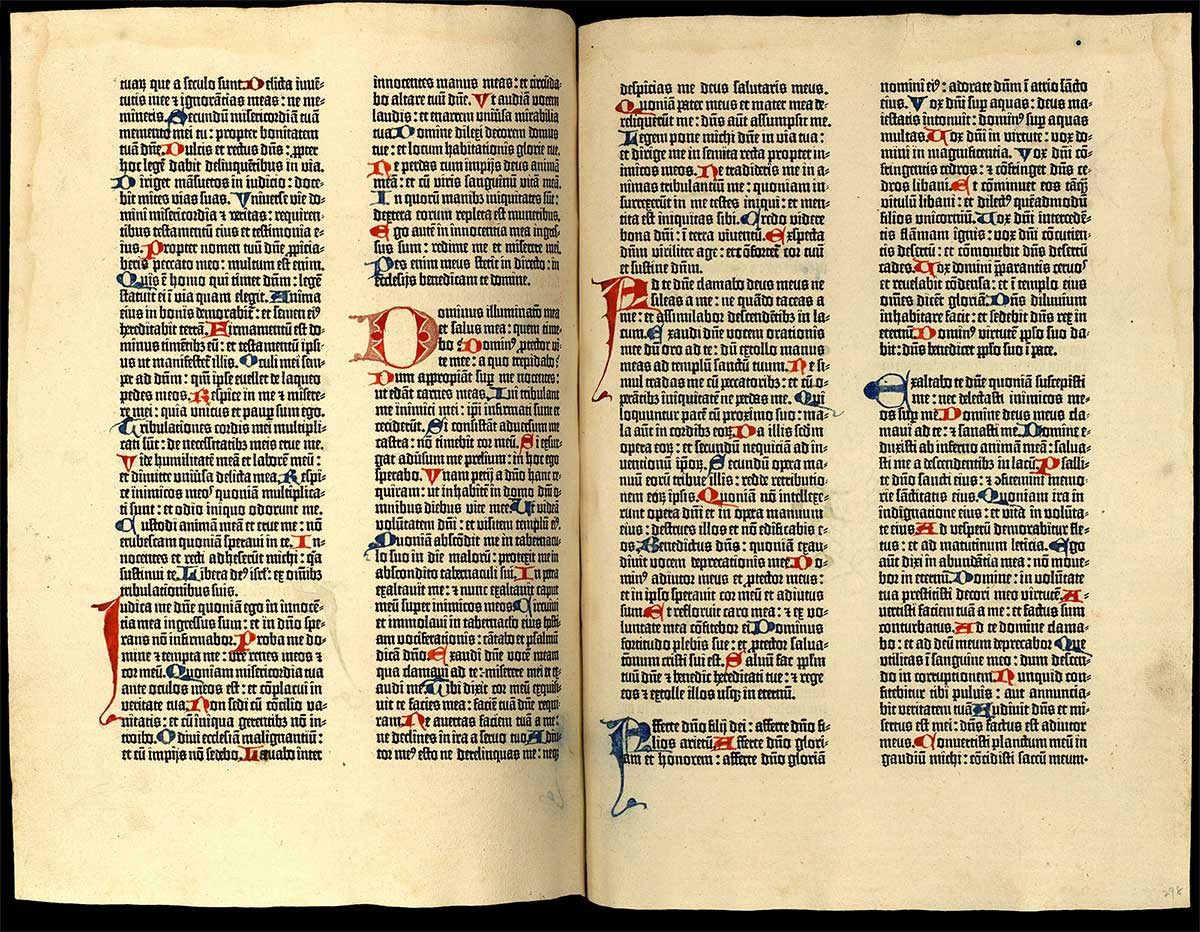 tuaꝝ que a seculo sunt. Delicta iuuē-
tutis mee ⁊ ignorātias meas: ne me-
mineris. Secundū misericordiā tuā
memento mei tu: propter bonitatem
tuā dn̄e. Dulcis et rectus dn̄s: ꝓpter
hoc legē dabit delinquētibus in via.
Diriget māsuetos in iudicio: doce-
bit mites vias suas. Vniuerse vie do-
mini misericordia ⁊ veritas: requiren-
tibus testamentū eius et testimonia e-
ius. Propter nomen tuū dn̄e ꝓpicia-
beris peccato meo: multum est enim.
Quis ē homo qui timet dūm: legē
statuit ei ī via quam elegit. Anima
eius in bonis demorabit᷑: et semen ei⁹
hereditabit terrā. Firmamentū est do-
minus timētibꝫ eū: et testamentū ipsi-
us ut manifestet᷑ illis. Oculi mei sem-
per ad dūm: qm̄ ipse euellet de laqueo
pedes meos. Respice in me ⁊ misere-
re mei: quia vnicus et paup sum ego.
Tribulationes cordis mei multipli-
cati sūt: de necessitatibꝫ meis erue me.
Vide humilitatē meā et laborē meū:
et dimitte vniūsa delicta mea. Respi-
ce inimicos meos quoniā multiplica-
ti sunt: et odio iniquo oderunt me.
Custodi animā meā et erue me: nō
erubescam quoniā speraui in te. In-
nocentes et recti adheserūt michi: q̄a
sustinui te. Libera de⁹ isrl̄: ex om̄ibꝫ
tribulationibus suis.
Iudica me dn̄e quoniā ego in innocē-
tia mea ingressus sum: et in dn̄o spe-
rans nō infirmabor. Proba me do-
mine ⁊ tempta me: vre renes meos ⁊
cor meū. Quoniam misericordia tua
ante oculos meos est: et cōplacui in
veritate tua. Non sedi cū cōcilio va-
nitatis: et cū iniqua gerentibꝫ nō in-
troibo. Odiui ecclesiā malignantiū:
et cū impijs nō sedebo. Lauabo inter
innocentes manus meas: et circūda-
bo altare tuū dn̄e. Vt audiā vocem
laudis: et enarrem vniūsa mirabilia
tua. Domine dilexi decorem domus
tue: et locum habitationis glorie tue.
Ne perdas cum impijs deus animā
meā: et cū viris sanguinū vitā meā.
In quorū manibꝫ iniquitates sūt:
dextera eorum repleta est muneribus.
Ego autē in innocentia mea ingres-
sus sum: redime me et miserere mei.
Pes enim meus stetit in directo: in
ecclesijs benedicam te domine.
Dominus illuminatio mea
et salus mea: quem time-
bo? Domin⁹ ꝓtector vi-
te mee: a quo trepidabo?
Dum appropiāt sup me nocentes:
ut edant carnes meas. Qui tribulant
me inimici mei: ipi infirmati sunt et
ceciderūt. Si consistāt aduersum me
castra: nō timebit cor meū. Si exsur-
gat adūsum me prelium: in hoc ego
sperabo. Vnam petij a dn̄o hanc re-
quiram: ut inhabitē in domo dn̄i o-
mnibus diebus vite mee. Ut videā
volūtatem dn̄i: et visitem templū ei⁹.
Quoniā abscōdit me in tabernacu-
lo suo in die malorū: protexit me in
abscondito tabernaculi sui. In petra
exaltauit me: ⁊ nunc exaltauit caput
meū super inimicos meos. Circuiui
et immolaui in tabernaclo eius hostiā
am vociferationis: cātabo et psalmū
dicā dn̄o. Exaudi dn̄e vocē meam
qua clamaui ad te: miserere mei et ex-
audi me. Tibi dixit cor meū exquisi-
uit te facies mea: faciē tuā dn̄e requi-
ram. Ne auertas faciem tuā a me:
ne declines in ira a seruo tuo. Adiu-
tor me⁹ esto ne derelinquas me: neqꝫ
despicias me deus salutaris meus.
Quoniā pater meus et mater mea de-
reliquerūt me: dn̄s aūt assumpsit me.
Legem pone michi dn̄e in via tua:
et dirige me in semita recta propter in-
imicos meos. Ne tradideris me in a-
nimas tribulantiū me: quoniam in-
surrexerūt in me testes iniqui: et men-
tita est iniquitas sibi. Credo videre
bona dn̄i: ī terra viuentiū. Exspecta
dūm viriliter age: et ꝯfortet᷑ cor tuū
et sustine dūm.
Ad te dn̄e clamabo deus meus ne
sileas a me: ne quādo taceas a
me: et assimilabor descendētibꝫ in la-
cum. Exaudi dn̄e vocem orationis
mee dū oro ad te: dū extollo manus
meas ad templū sanctū tuum. Ne si-
mul tradas me cū peccatoribꝫ: et cū o-
perātibꝫ iniquitatē ne perdas me. Qui
loquuntur pacē cū proximo suo: ma-
la aūt in cordibꝫ eoꝝ. Da illis scdm
opera eoꝝ: et secundū nequiciā ad in-
uentionū ipoꝝ. Secundū opera ma-
nuū eorū tribue illis: redde retributio-
nem eoꝝ ipsis. Quoniā nō intellexe-
runt opera dn̄i et in opera manuum
eius: destrues illos et nō edificabis e-
os. Benedictus dn̄s: quoniā exau-
diuit vocem deprecationis mee. Do-
min⁹ adiutor meus et ꝓtector meus:
et in ipso sperauit cor meū et adiutus
sum. Et refloruit caro mea: et ex vo-
luntate mea cōfitebor ei. Dominus
fortitudo plebis sue: et ꝓtector salua-
tionum cristi sui est. Saluū fac pplm
tuū dn̄e ⁊ benedic hereditati tue: et rege
eos ⁊ extolle illos usqꝫ in eternū.
Afferte dn̄o filij dei: afferte dn̄o fi-
lios arietū. Afferte dn̄o glori-
am et honorem: afferte dn̄o gloriā
nomini ei⁹: adorate dūm ī atrio sācto
eius. Vox dn̄i sup aquas: deus ma-
iestatis intonuit: domin⁹ sup aquas
multas. Vox dn̄i in virtute: vox do-
mini in magnificentia. Vox dn̄i cō-
fringentis cedros: et cōfringet dn̄s ce-
dros libani. Et cōminuet eos tāqꝫ
vitulū libani: et dilect⁹ quēadmodū
filius unicornium. Vox dn̄i intercedē-
tis flammā ignis: vox dn̄i cōcutien-
tis desertū: et cōmouebit dn̄s desertū
cades. Vox domini ꝓparantis ceruos
et reuelabit cōdensa: et ī templo eius
om̄es dicēt gloriā. Dn̄s diluuium
inhabitare facit: et sedebit dn̄s rex in
eternū. Domin⁹ virtutē pplo suo da-
bit: dn̄s benedicet pplo suo ī pace.
Exaltabo te dn̄e quoniā suscepisti
me: nec delectasti inimicos me-
os sup me. Domine deus meus cla-
maui ad te: ⁊ sanasti me. Domine e-
duxisti ab inferno animā meā: salua-
sti me a descendentibꝫ in lacū. Psalli-
te dn̄o sancti eius: ⁊ cōfitemini memo-
rie sāctitatis eius. Quoniam ira in
indignatione eius: et vita in volunta-
te eius. Ad vesperū demorabitur fle-
tus: et ad matutinum leticia. Ego
aūt dixi in abundātia mea: nō moue-
bor in eternū. Domine: in volūtate
tua prestitisti decori meo virtutē. A-
uertisti faciem tuā a me: et factus sum
conturbatus. Ad te domine clama-
bo: et ad deū meum deprecabor. Que
utilitas ī sanguine meo: dum descen-
do in corruptionem? Nunquid con-
fitebitur tibi puluis: aut annuncia-
bit veritatem tuā? Audiuit dn̄s et mi-
sertus est mei: dn̄s factus est adiutor
meus. Conuertisti planctum meū in
gaudiū michi: cōcidisti saccū meum.
298